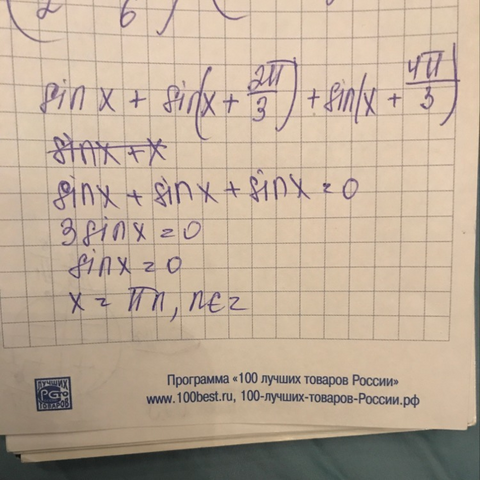 (2 6)
sin x + sin(x + 2π/3) + sin(x + 4π/3)
sinx + x
sinx + sinx + sinx = 0
3 sinx = 0
sinx = 0
x = πn, n∈z
ЛУЧШИХ
ТОВАРОВ
Программа «100 лучших товаров России»
www.100best.ru, 100-лучших-товаров-России.рф